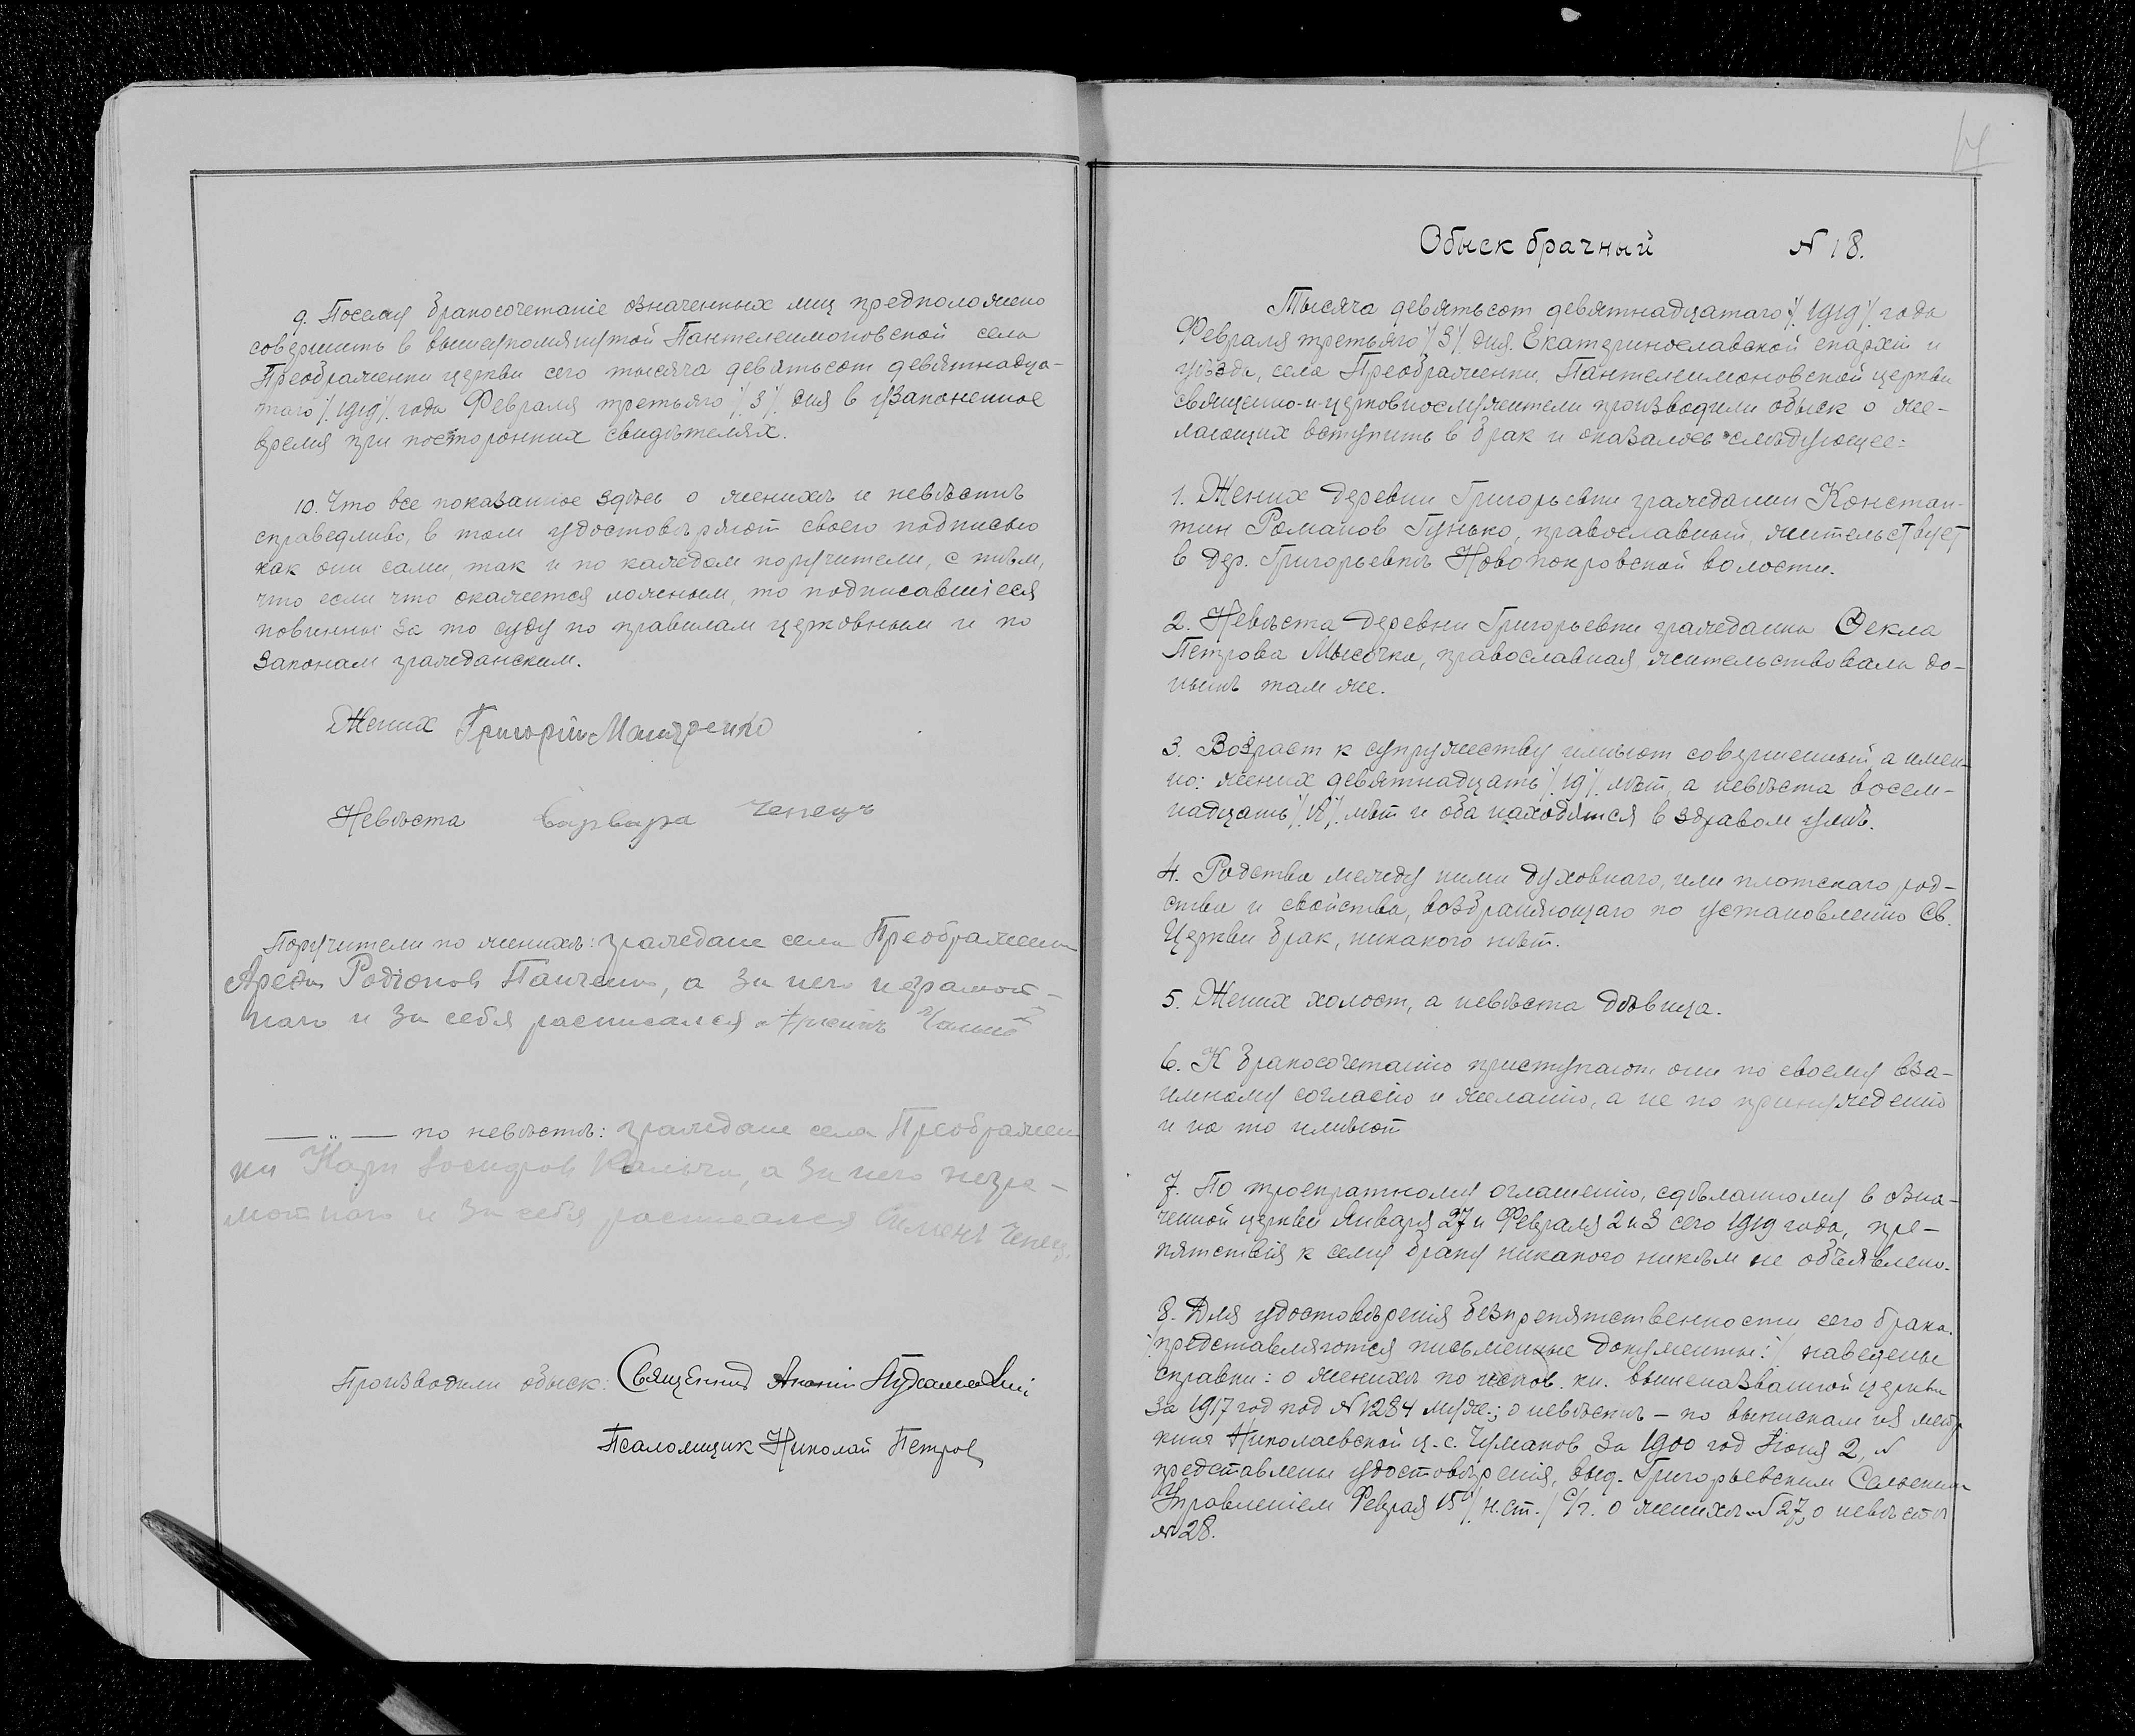 9. Посему бракосочетаніе означенных лиц предположено
совершить в вышеупомянутой Пантелеимоновской села
Преображенки церкви сего тысяча девятьсот девятнадца-
таго /1919/ года Февраля третьяго /3/ дня в узаконенное
время при посторонних свидѣтелях.
10. Что все показанное здѣсь о женихѣ и невѣстѣ
справедливо, в том удостовѣряют своею подписью
как они сами, так и по каждом поручители, с тѣм,
что если что окажется ложным, то подписавшіеся
повинны за то суду по правилам церковным и по
законам гражданским.
Жених Григорій
Невѣста Варвара Чепець
Поручители по женихѣ: граждане села Преображен
Родіонов Панченко, а за него неграмот-
наго и за себя расписался
—„— по невѣстѣ: граждане села Преображен
ки Карп Іосифов а за него негра-
мотнаго и за себя расписался Чепец
Производили обыск: Священник
Псаломщик Николай Петров
14
Обыск брачный № 18.
Тысяча девятьсот девятнадцатаго /1919/ года
Февраля третьяго /3/ дня. Екатеринославской епархіи и
уѣзда, села Преображенки, Пантелеимоновской церкви
священно-и-церковнослужители производили обыск о же-
лающих вступить в брак и оказалось слѣдующее:
1. Жених деревни Григорьевки гражданин Констан-
тин Романов Гунько, православный, жительствует
в дер. Григорьевкѣ Новопокровской волости.
2. Невѣста деревни Григорьевки гражданка Ѳекла
Петрова Мысочка, православная, жительствовала до-
нынѣ там же.
3. Возраст к супружеству имѣют совершенный, а имен-
но: жених девятнадцать /19/ лѣт, а невѣста восем-
надцать /18/ лѣт и оба находятся в здравом умѣ.
4. Родства между ними духовнаго, или плотскаго род-
ства и свойства, возбраняющаго по установленію Св.
Церкви брак, никакого нѣт.
5. Жених холост, а невѣста дѣвица.
6. К бракосочетанію приступают они по своему вза-
имному согласію и желанію, а не по принужденію
и на то имѣют
7. По троекратному оглашенію, сдѣланному в озна-
ченной церкви Января 27 и Февраля 2 и 3 сего 1919 года, пре-
пятствія к сему браку никакого никѣм не объявлено.
8. Для удостовѣренія безпрепятственности сего брака
/представляются письменные документы:/ наведены
справки: о женихѣ по испов. кн. вышеназванной церкви
за 1917 год под № 1284 муж.; о невѣстѣ – по выпискам из метр
книг Николаевской ц. с. Чумаков за 1900 год Іюня 2, №
представлены удостовѣренія, выд. Григорьевским Сельским
Управленіем Феврал 15 /н. ст./ с/г. о женихѣ № 27, о невѣстѣ
№ 28.